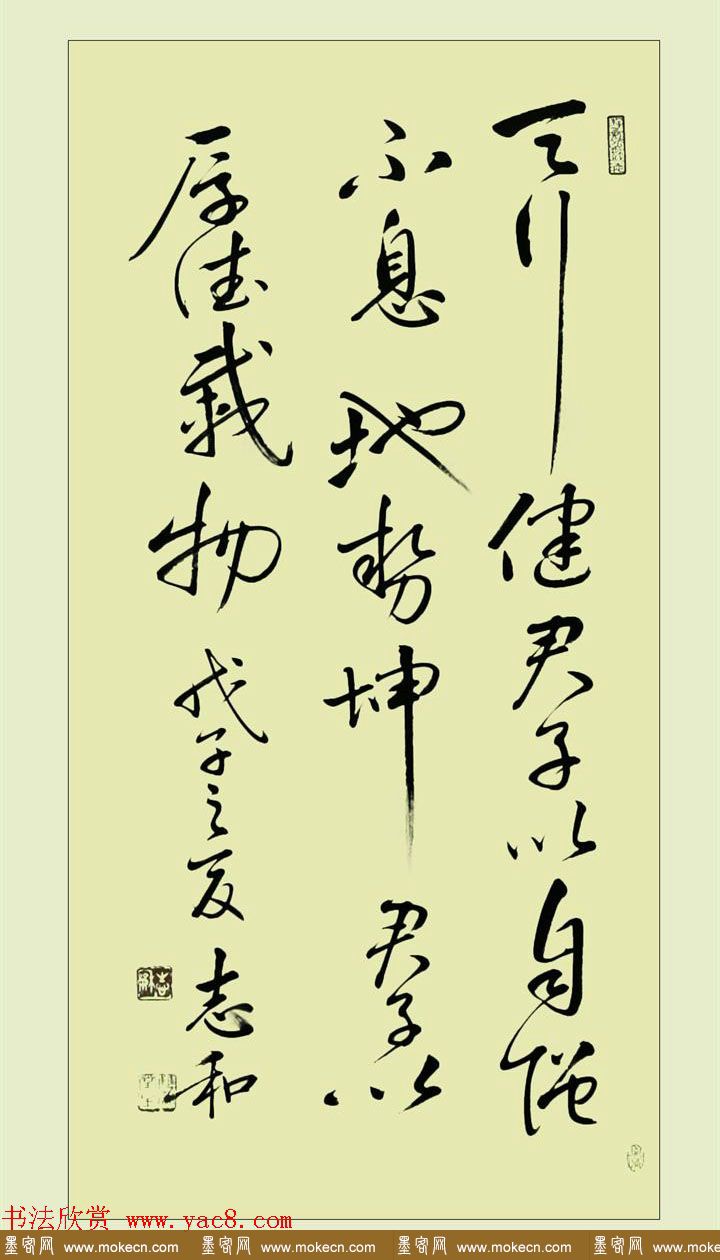 天行健君子以自强
不息地势坤君子以
厚德载物戊子之夏志和
书法欣赏 www.yac8.com
墨客网 www.mokecn.com 墨客网 www.mokecn.com 墨客网 www.mokecn.com 墨客网 www.mokecn.com